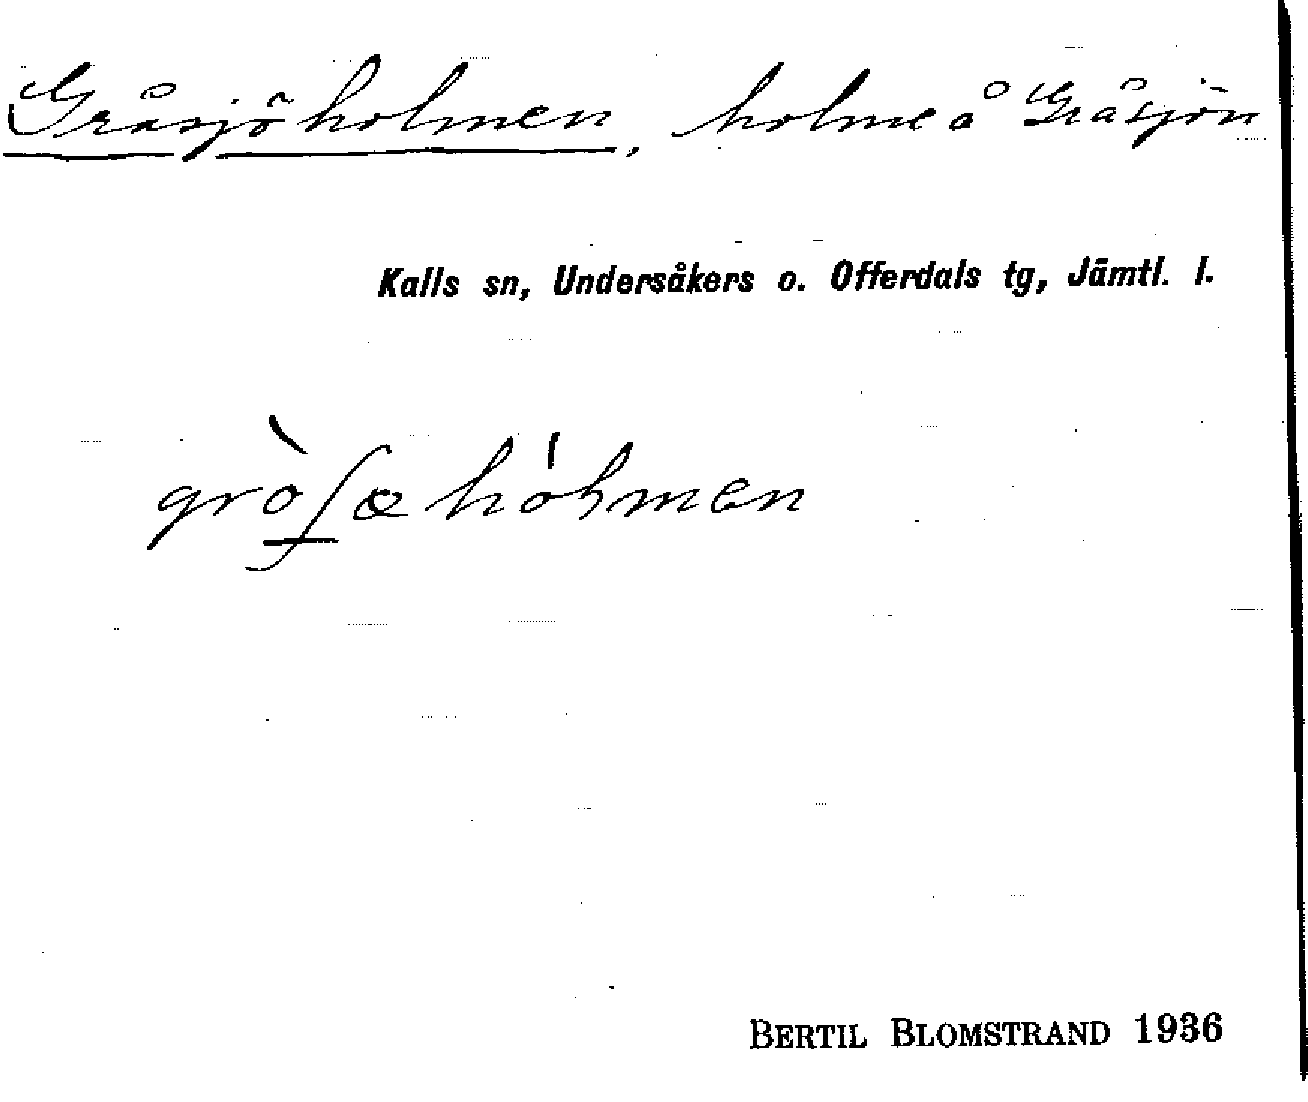 Gråsjöholmen, holme å Gråsjön
Kalls sn, Undersåkers o. Offerdals tg, Jämtl. l.
gròʃœhólmen
BERTIL BLOMSTRAND 1936